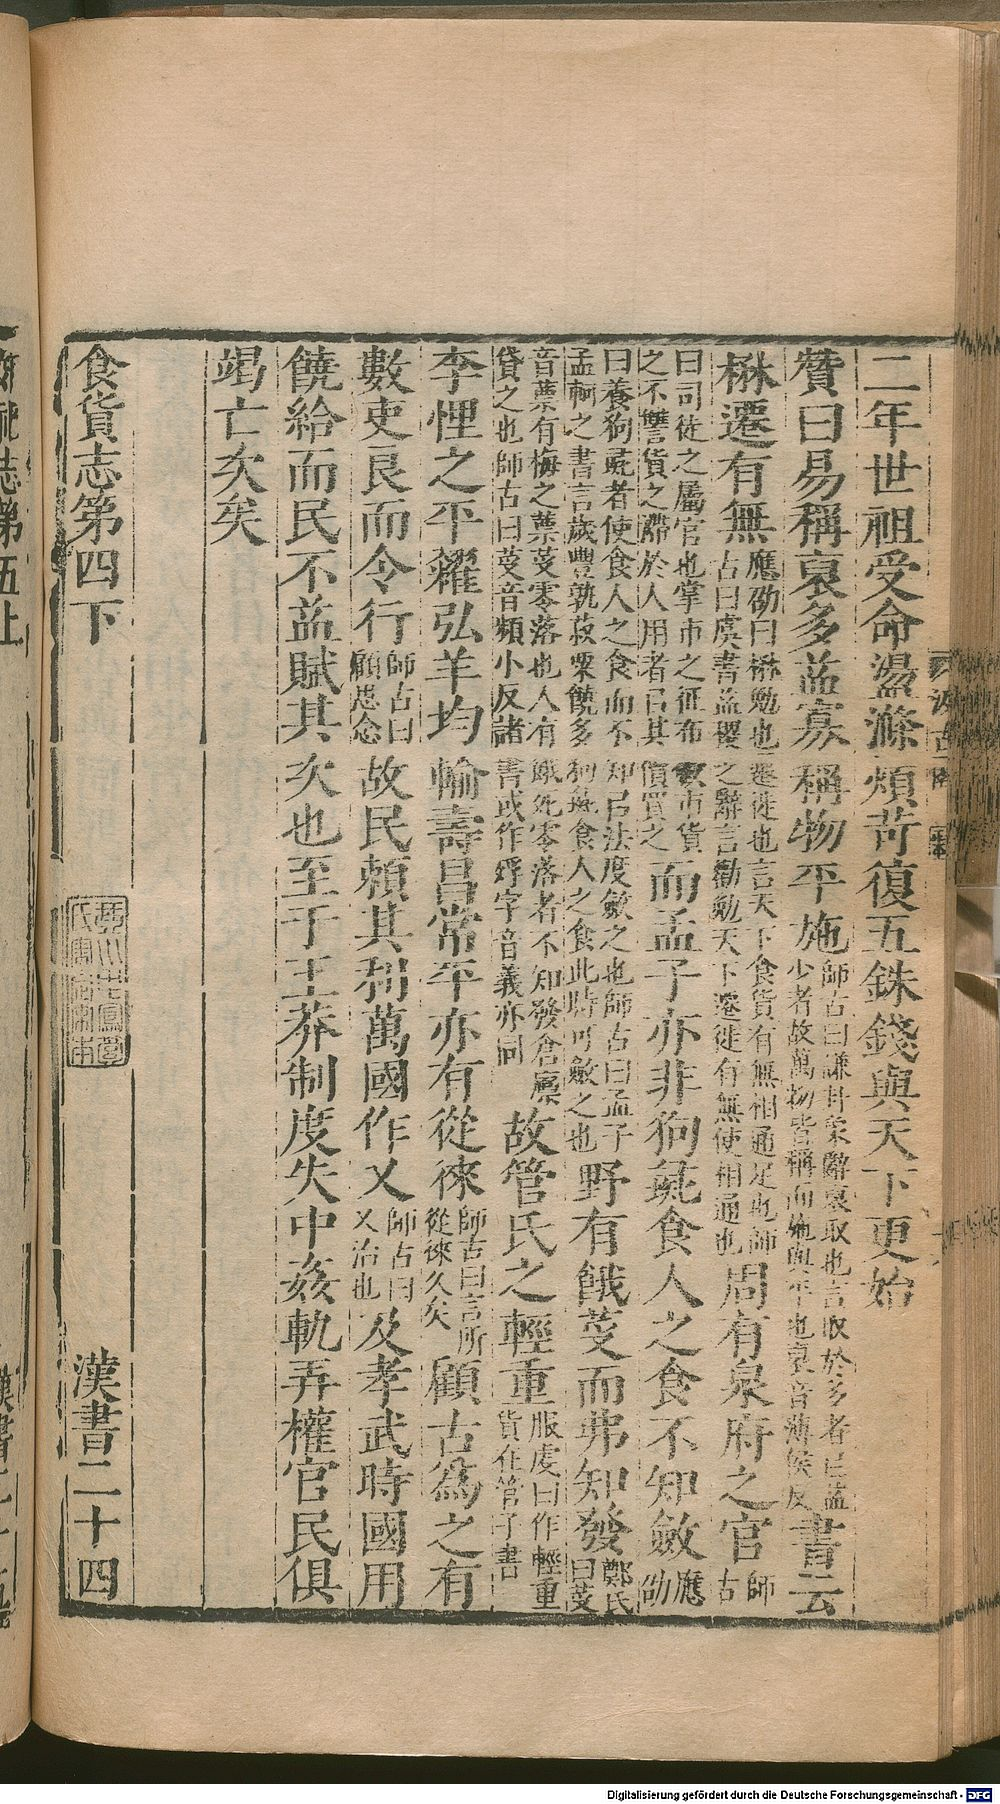 二年世祖受命盪滌煩苛復五銖錢與天下更始
贊曰易稱裒多益寡稱物平施師古曰謙卦象辭裒取也言取於多者以益少者故萬物皆稱而施與平也裒音薄侯反書云
楙遷有無應劭曰楙勉也遷徙也言天下食貨有無相通足也師古曰虞書益稷之辭言勸勉天下遷徙有無使相通也周有泉府之官師古
曰司徒之屬官也掌市之征布斂市貨之不讐貨之滯於人用者㠯其價買之而孟子亦非狗彘食人之食不知斂應劭
曰養狗彘者使食人之食而不知㠯法度斂之也師古曰孟子孟軻之書言歲豐孰菽粟饒多狗彘食人之食此時可斂之也野有餓芆而弗知發鄭氏曰芆
音蔈有梅之蔈芆零落也人有餓死零落者不知發倉廩貸之也師古曰芆音頻小反諸書或作殍字音義亦同故管氏之輕重服虔曰作輕重貨在管子書
李悝之平糴弘羊均輸壽昌常平亦有從徠師古曰言所從徠久矣顧古為之有
數吏良而令行師古曰顧思念故民賴其利萬國作乂師古曰乂治也及孝武時國用
饒給而民不益賦其次也至于王莽制度失中姦軌弄權官民俱
竭亡次矣
食貨志第四下
漢書二十四